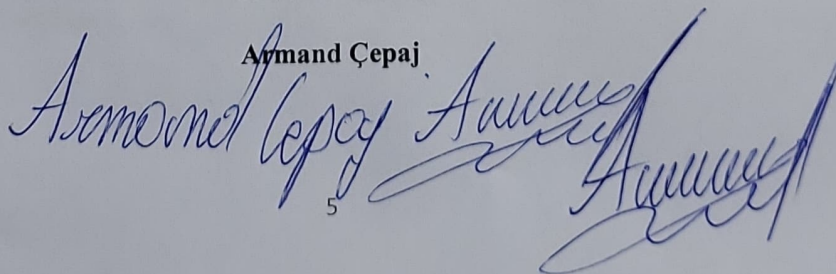 Armand Çepaj
Armand Cepaj
5